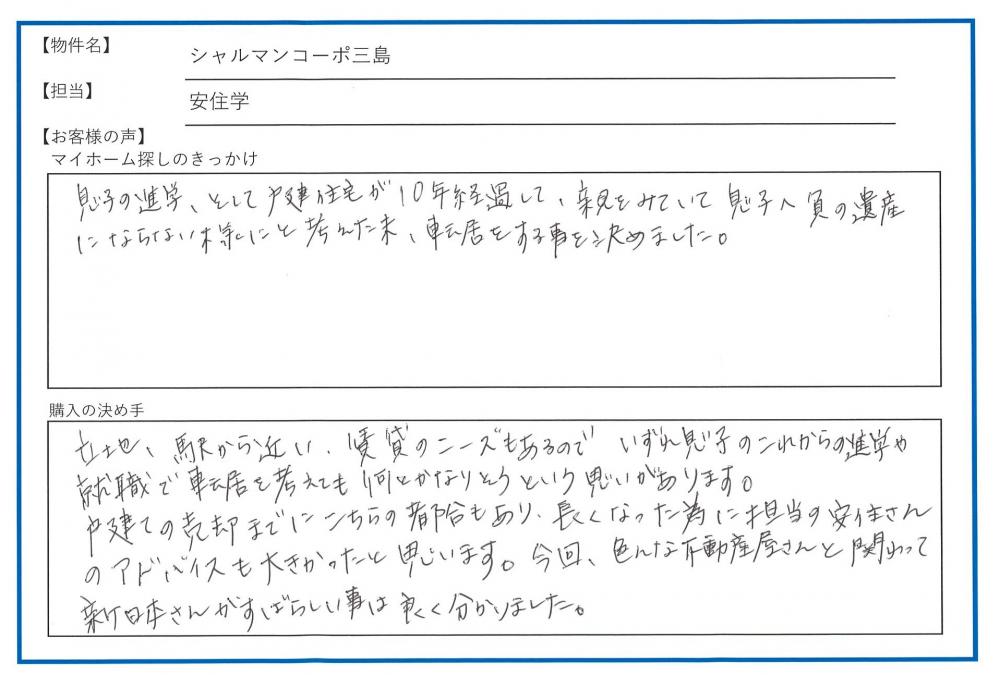 【物件名】
シャルマンコーポ三島
【担当】
安住学
【お客様の声】
マイホーム探しのきっかけ
息子の進学、そして戸建住宅が10年経過して、親をみていて息子へ負の遺産
にならない様にと考えた末、転居をする事を決めました。
購入の決め手
立地、駅から近い、賃貸のニーズもあるので いずれ息子のこれからの進学や
就職で転居を考えても何とかなりそうという思いがあります。
戸建ての売却までにこちらの都合もあり、長くなった為に担当の安住さん
のアドバイスも大きかったと思います。今回、色んな不動産屋さんと関わって
新日本さんがすばらしい事は良く分かりました。